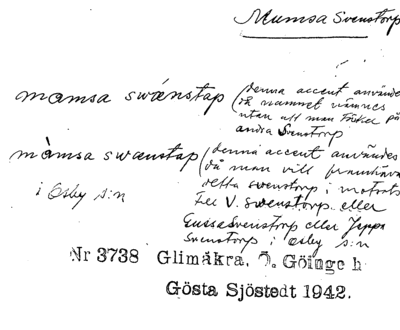 Mumsa Svenstorp
momsa swánstap (denna accent användes
då namnet nämnes
utan att man tänker på
andra Svenstorp
mòmsa swænstap (denna accent användes
då man vill framhäva
detta svenstorp i motsats
i Osby s:n
till V. Svenstorp eller
Gussasvenstorp eller Jeppa
Svenstorp i Osby s:n
Nr 3738 Glimåkra, Ö. Göinge h
Gösta Sjöstedt 1942.